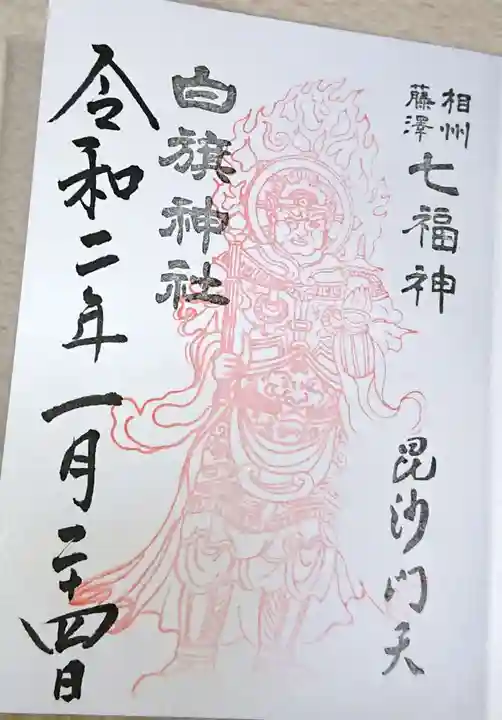 相州
藤澤
七福神
毘沙門天
白旗神社
令和二年一月二十四日